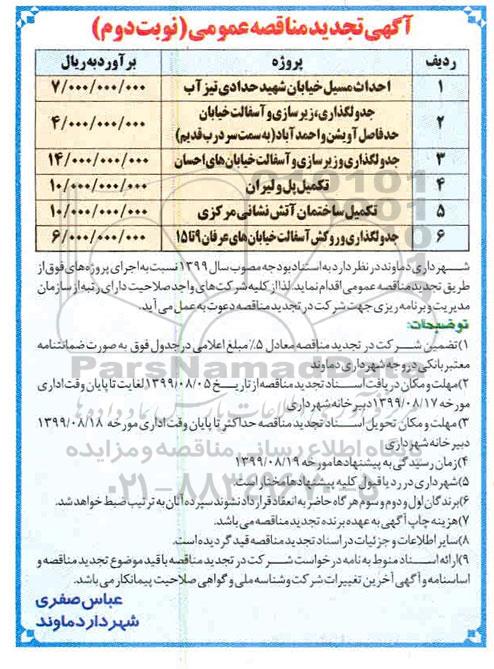 آگهی تجدید مناقصه عمومی (نوبت دوم)
ردیف پروژه برآورد به ریال
۱ احداث مسیل خیابان شهید حدادی تیزآب ۷/۰۰۰/۰۰۰/۰۰۰
۲ جدولگذاری، زیرسازی و آسفالت خیابان
حدفاصل آویشن و احمدآباد (به سمت سردرب قدیم) ۴/۰۰۰/۰۰۰/۰۰۰
۳ جدولگذاری و زیرسازی و آسفالت خیابان های احسان ۱۴/۰۰۰/۰۰۰/۰۰۰
۴ تکمیل پل ولیران ۱۰/۰۰۰/۰۰۰/۰۰۰
۵ تکمیل ساختمان آتش نشانی مرکزی ۱۰/۰۰۰/۰۰۰/۰۰۰
۶ جدولگذاری و روکش آسفالت خیابان های عرفان ۹ تا ۱۵ ۶/۰۰۰/۰۰۰/۰۰۰
شهرداری دماوند در نظر دارد به استناد بودجه مصوب سال ۱۳۹۹ نسبت به اجرای پروژه های فوق از
طریق تجدید مناقصه عمومی اقدام نماید. لذا از کلیه شرکت های واجد صلاحیت دارای رتبه از سازمان
مدیریت و برنامه ریزی جهت شرکت در تجدید مناقصه دعوت به عمل می آید.
توضیحات:
۱) تضمین شرکت در تجدید مناقصه معادل ۵٪ مبلغ اعلامی در جدول فوق به صورت ضمانتنامه
معتبر بانکی در وجه شهرداری دماوند
۲) مهلت و مکان دریافت اسناد تجدید مناقصه از تاریخ ۱۳۹۹/۰۸/۰۵ لغایت تا پایان وقت اداری
مورخه ۱۳۹۹/۰۸/۱۷ دبیرخانه شهرداری
۳) مهلت و مکان تحویل اسناد تجدید مناقصه حداکثر تا پایان وقت اداری مورخه ۱۳۹۹/۰۸/۱۸
دبیرخانه شهرداری
۴) زمان رسیدگی به پیشنهادها مورخه ۱۳۹۹/۰۸/۱۹
۵) شهرداری در رد یا قبول کلیه پیشنهادها مختار است.
۶) برندگان اول و دوم و سوم هر گاه حاضر به انعقاد قرارداد نشوند سپرده آنان به ترتیب ضبط خواهد شد.
۷) هزینه چاپ آگهی به عهده برنده تجدید مناقصه می باشد.
۸) سایر اطلاعات و جزئیات در اسناد تجدید مناقصه قید گردیده است.
۹) ارائه اسناد منوط به نامه درخواست شرکت در تجدید مناقصه با قید موضوع تجدید مناقصه و
اساسنامه و آگهی آخرین تغییرات شرکت و شناسه ملی و گواهی صلاحیت پیمانکار می باشد.
عباس صفری
شهردار دماوند
ParsNamadData